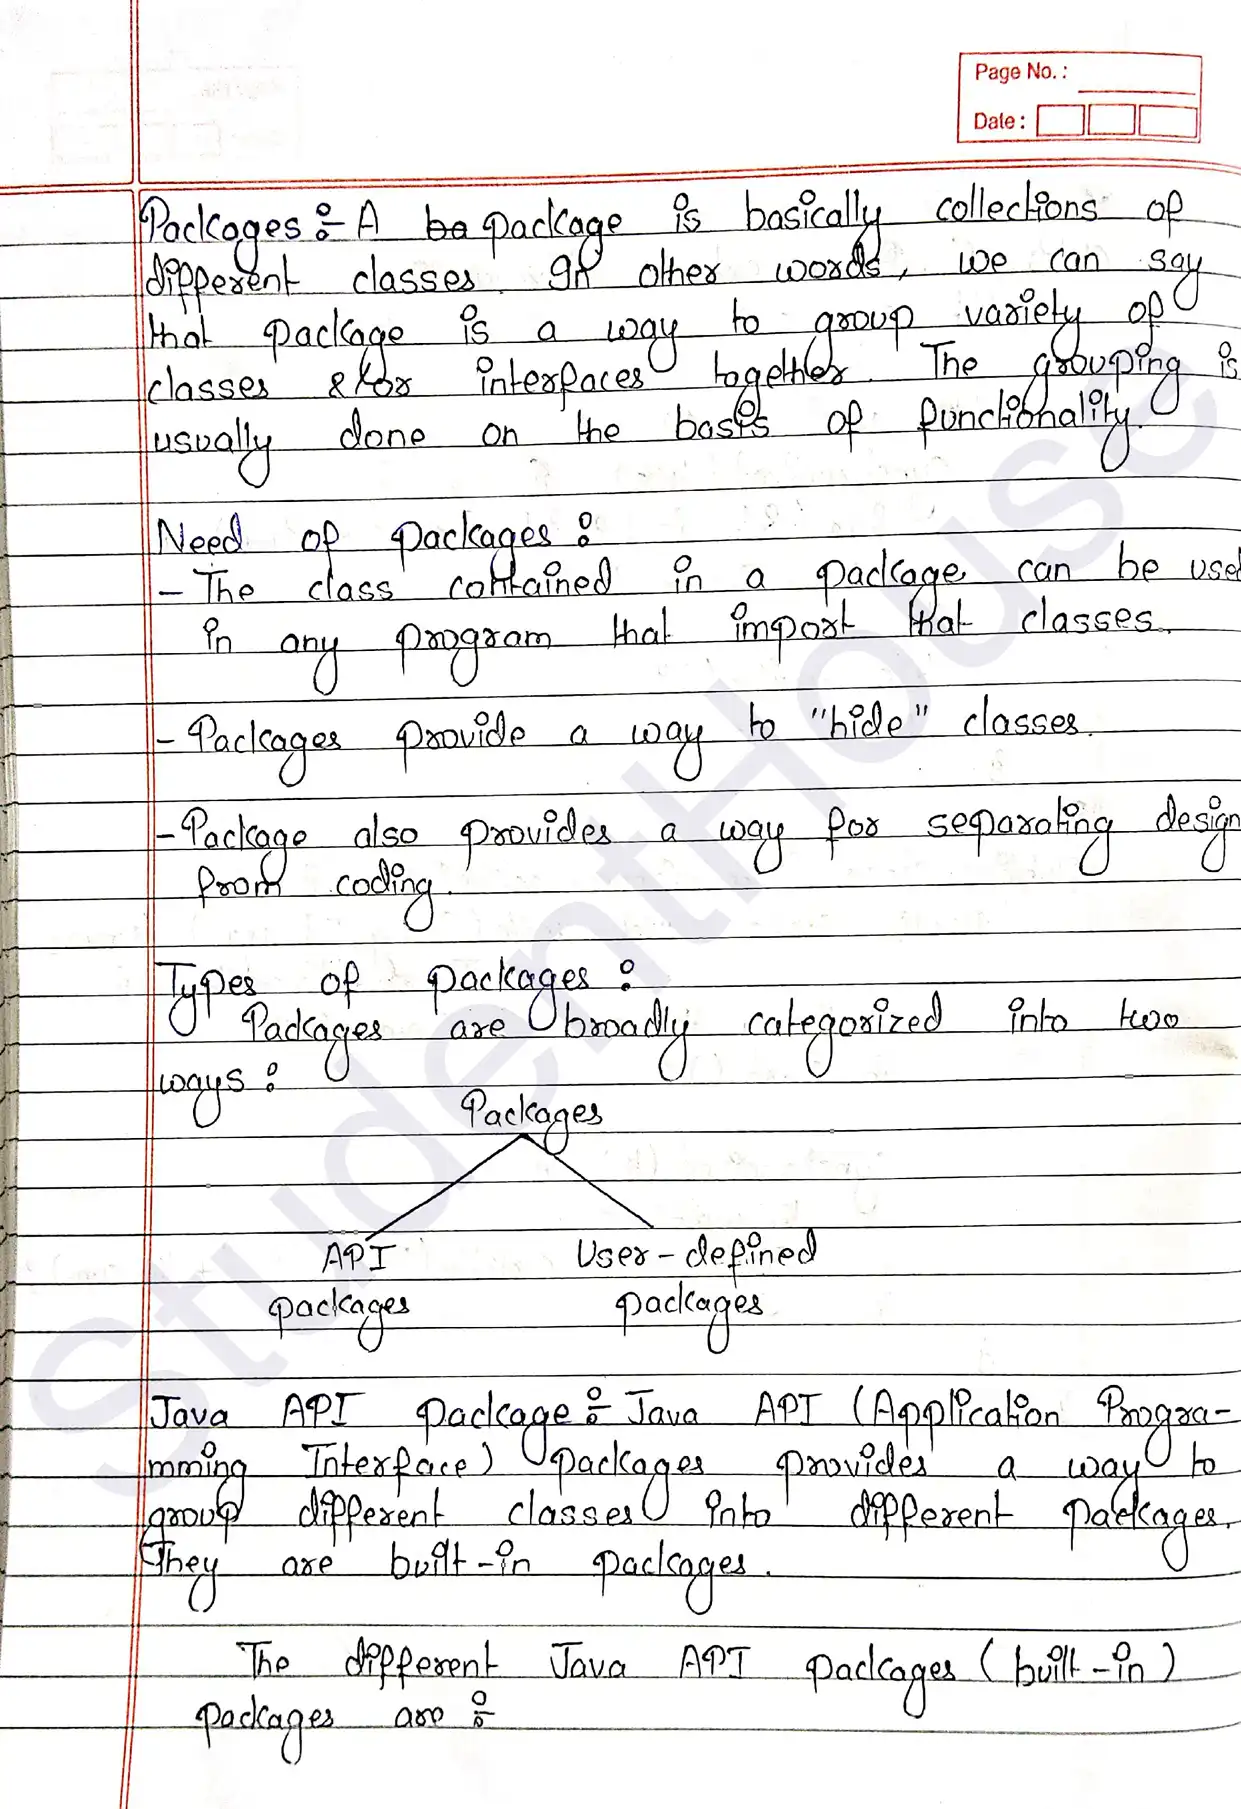 Page No. :
Date :
Packages :- A ba package is basically collections of
different classes. In other words, we can say
that package is a way to group variety of
classes &/or interfaces together. The grouping is
usually done on the basis of functionality.
Need of packages :
- The class contained in a package can be used
in any program that import that classes.
- Packages provide a way to "hide" classes.
- Package also provides a way for separating design
from coding.
Types of packages :
Packages are broadly categorized into two
ways :
Packages
API User-defined
packages packages
Java API package :- Java API (Application Progra-
mming Interface) packages provides a way to
group different classes into different packages.
They are built-in packages.
The different Java API packages (built-in)
packages are :-
StudentHouse